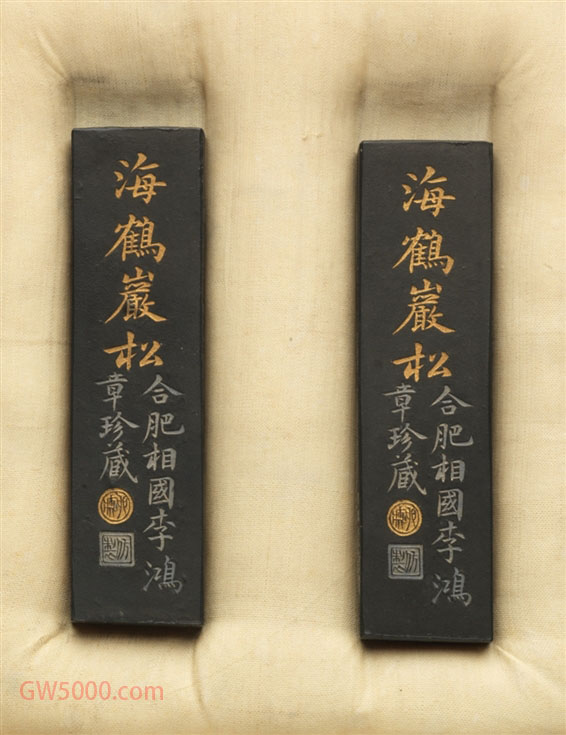 海鶴巖松
合肥相國李鴻
章珍藏
仿製
海鶴巖松
合肥相國李鴻
章珍藏
仿製
GW5000.com